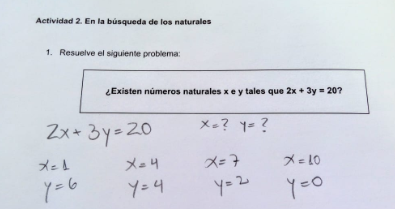 Actividad 2. En la búsqueda de los naturales
1. Resuelve el siguiente problema:
¿Existen números naturales x e y tales que 2x + 3y = 20?
2x + 3y = 20 x = ? y = ?
x = 1 x = 4 x = 7 x = 10
y = 6 y = 4 y = 2 y = 0